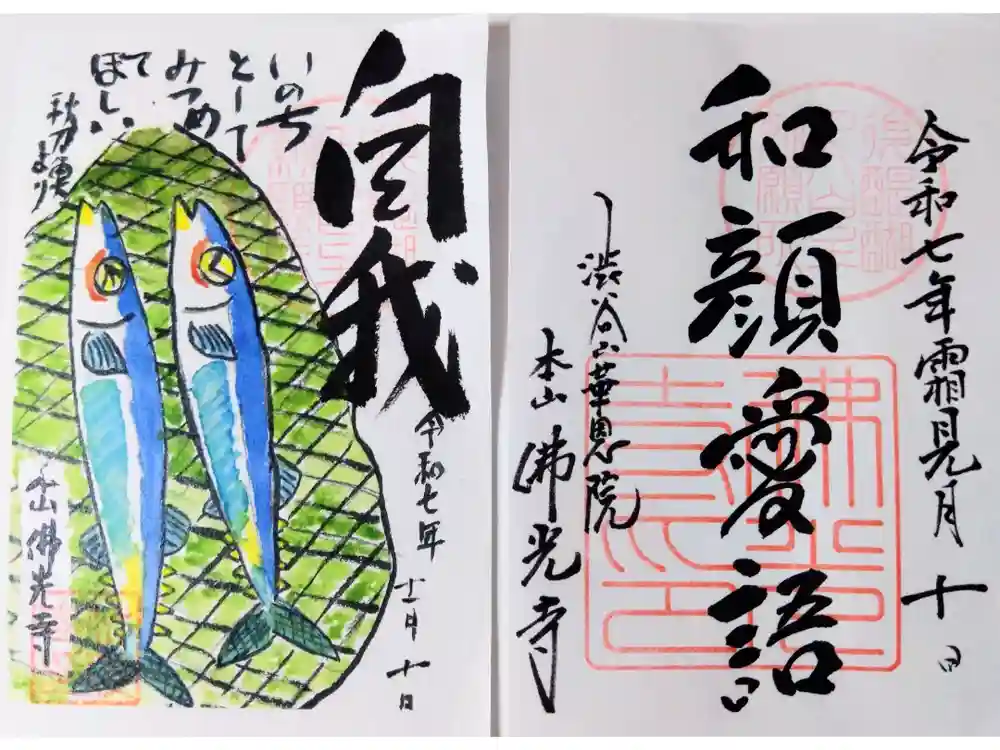 令和七年霜見月 十日
和顔愛語
渋谷山華恩院
本山 佛光寺
自我
令和七年 十一月 十日
いのち
として
みつめ
て
ほしい
秋刀魚より
本山佛光寺